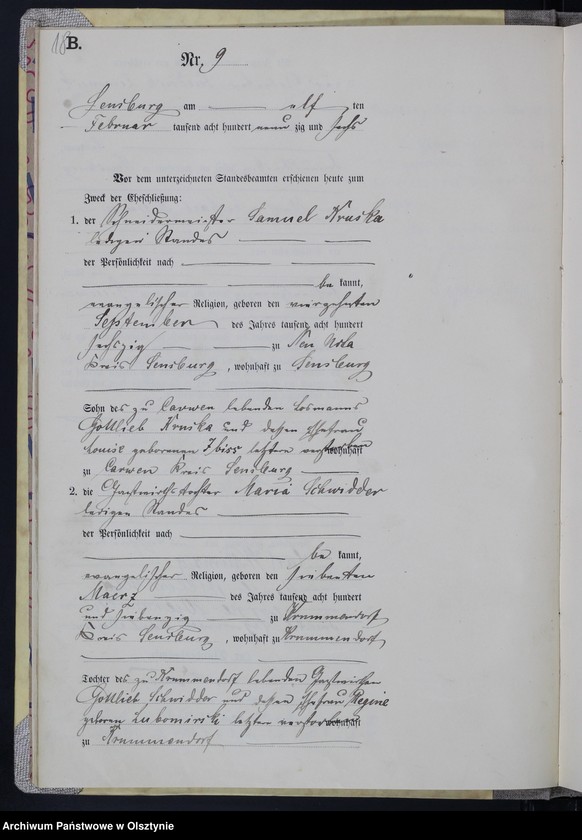 18 B.
Nr. 9
Sensburg am elf ten
Februar tausend acht hundert neun zig und sechs
Vor dem unterzeichneten Standesbeamten erschienen heute zum
Zweck der Eheschließung:
1. der Schneidermeister Samuel Kruska
ledigen Standes
der Persönlichkeit nach
be kannt,
evangelischer Religion, geboren den vierzehnten
September des Jahres tausend acht hundert
sechszig zu
Kreis Sensburg, wohnhaft zu Sensburg
Sohn des zu Carwen lebenden Losmanns
Gottlieb Kruska und dessen Ehefrau
Louise geborenen letztere verstorben wohnhaft
zu Carwen Kreis Sensburg
2. die Gastwirthstochter Maria Schwidder
ledigen Standes
der Persönlichkeit nach
be kannt,
evangelischer Religion, geboren den siebenten
Maerz des Jahres tausend acht hundert
und siebenzig zu Krummendorf
Kreis Sensburg, wohnhaft zu Krummendorf
Tochter des zu Krummendorf lebenden Gastwirthen
Gottlieb Schwidder und dessen Ehefrau Regine
geboren Lubomirski letztere verstorben wohnhaft
zu Krummendorf
Archiwum Państwowe w Olsztynie